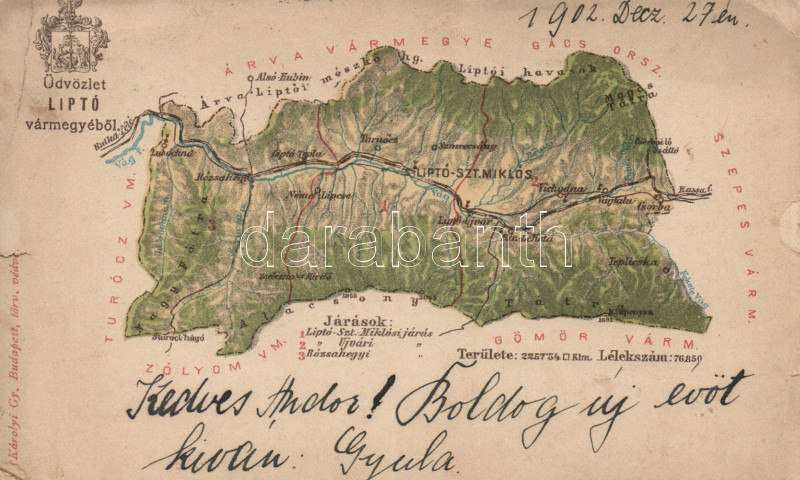 1902. Decz. 27én.
Üdvözlet
LIPTÓ
vármegyéből.
ÁRVA VÁRMEGYE
GÁCS ORSZ.
SZEPES VÁRM.
GÖMÖR VÁRM.
ZÓLYOM VM.
TURÓCZ VM.
Árva-Liptói mészkő hg.
Liptói havasok
Magas Tátra
Alsó-Kubin
Ruttka felé
Vág f.
Lubochna
Rózsahegy
Liptó-Tepla
Turnócz
LIPTÓ-SZT.MIKLÓS
Német Lipcse
Vág
Liptó-Ujvár
Vichodna
Vágfalu
Csorba
Kassa f.
Teplicska
Nagy Fátra
Alacsony Tátra
1
2
3
darabanth
Járások:
1 Liptó-Szt.-Miklósi járás
2 " Ujvári "
3 Rózsahegyi "
Területe: 2257·54 □ Klm. Lélekszám: 76.850
Károlyi Gy. Budapest, törv. védve
Kedves Andor! Boldog új évöt
kiván: Gyula.